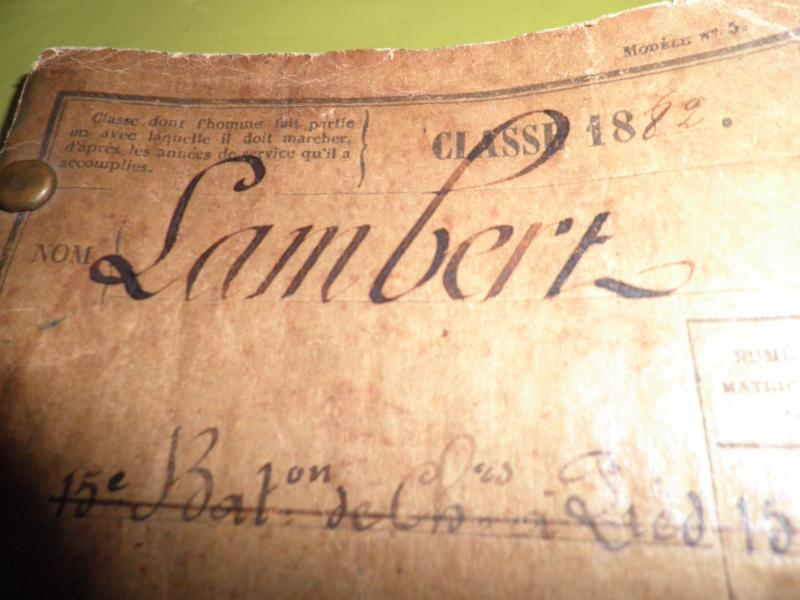 MODÈLE Nº 5.
Classe dont l'homme fait partie
ou avec laquelle il doit marcher,
d'après les années de service qu'il a
accomplies.
CLASSE 1882.
NOM Lambert
NUMÉ
MATRIC
15e Bat.on de Ch. à Pied 15